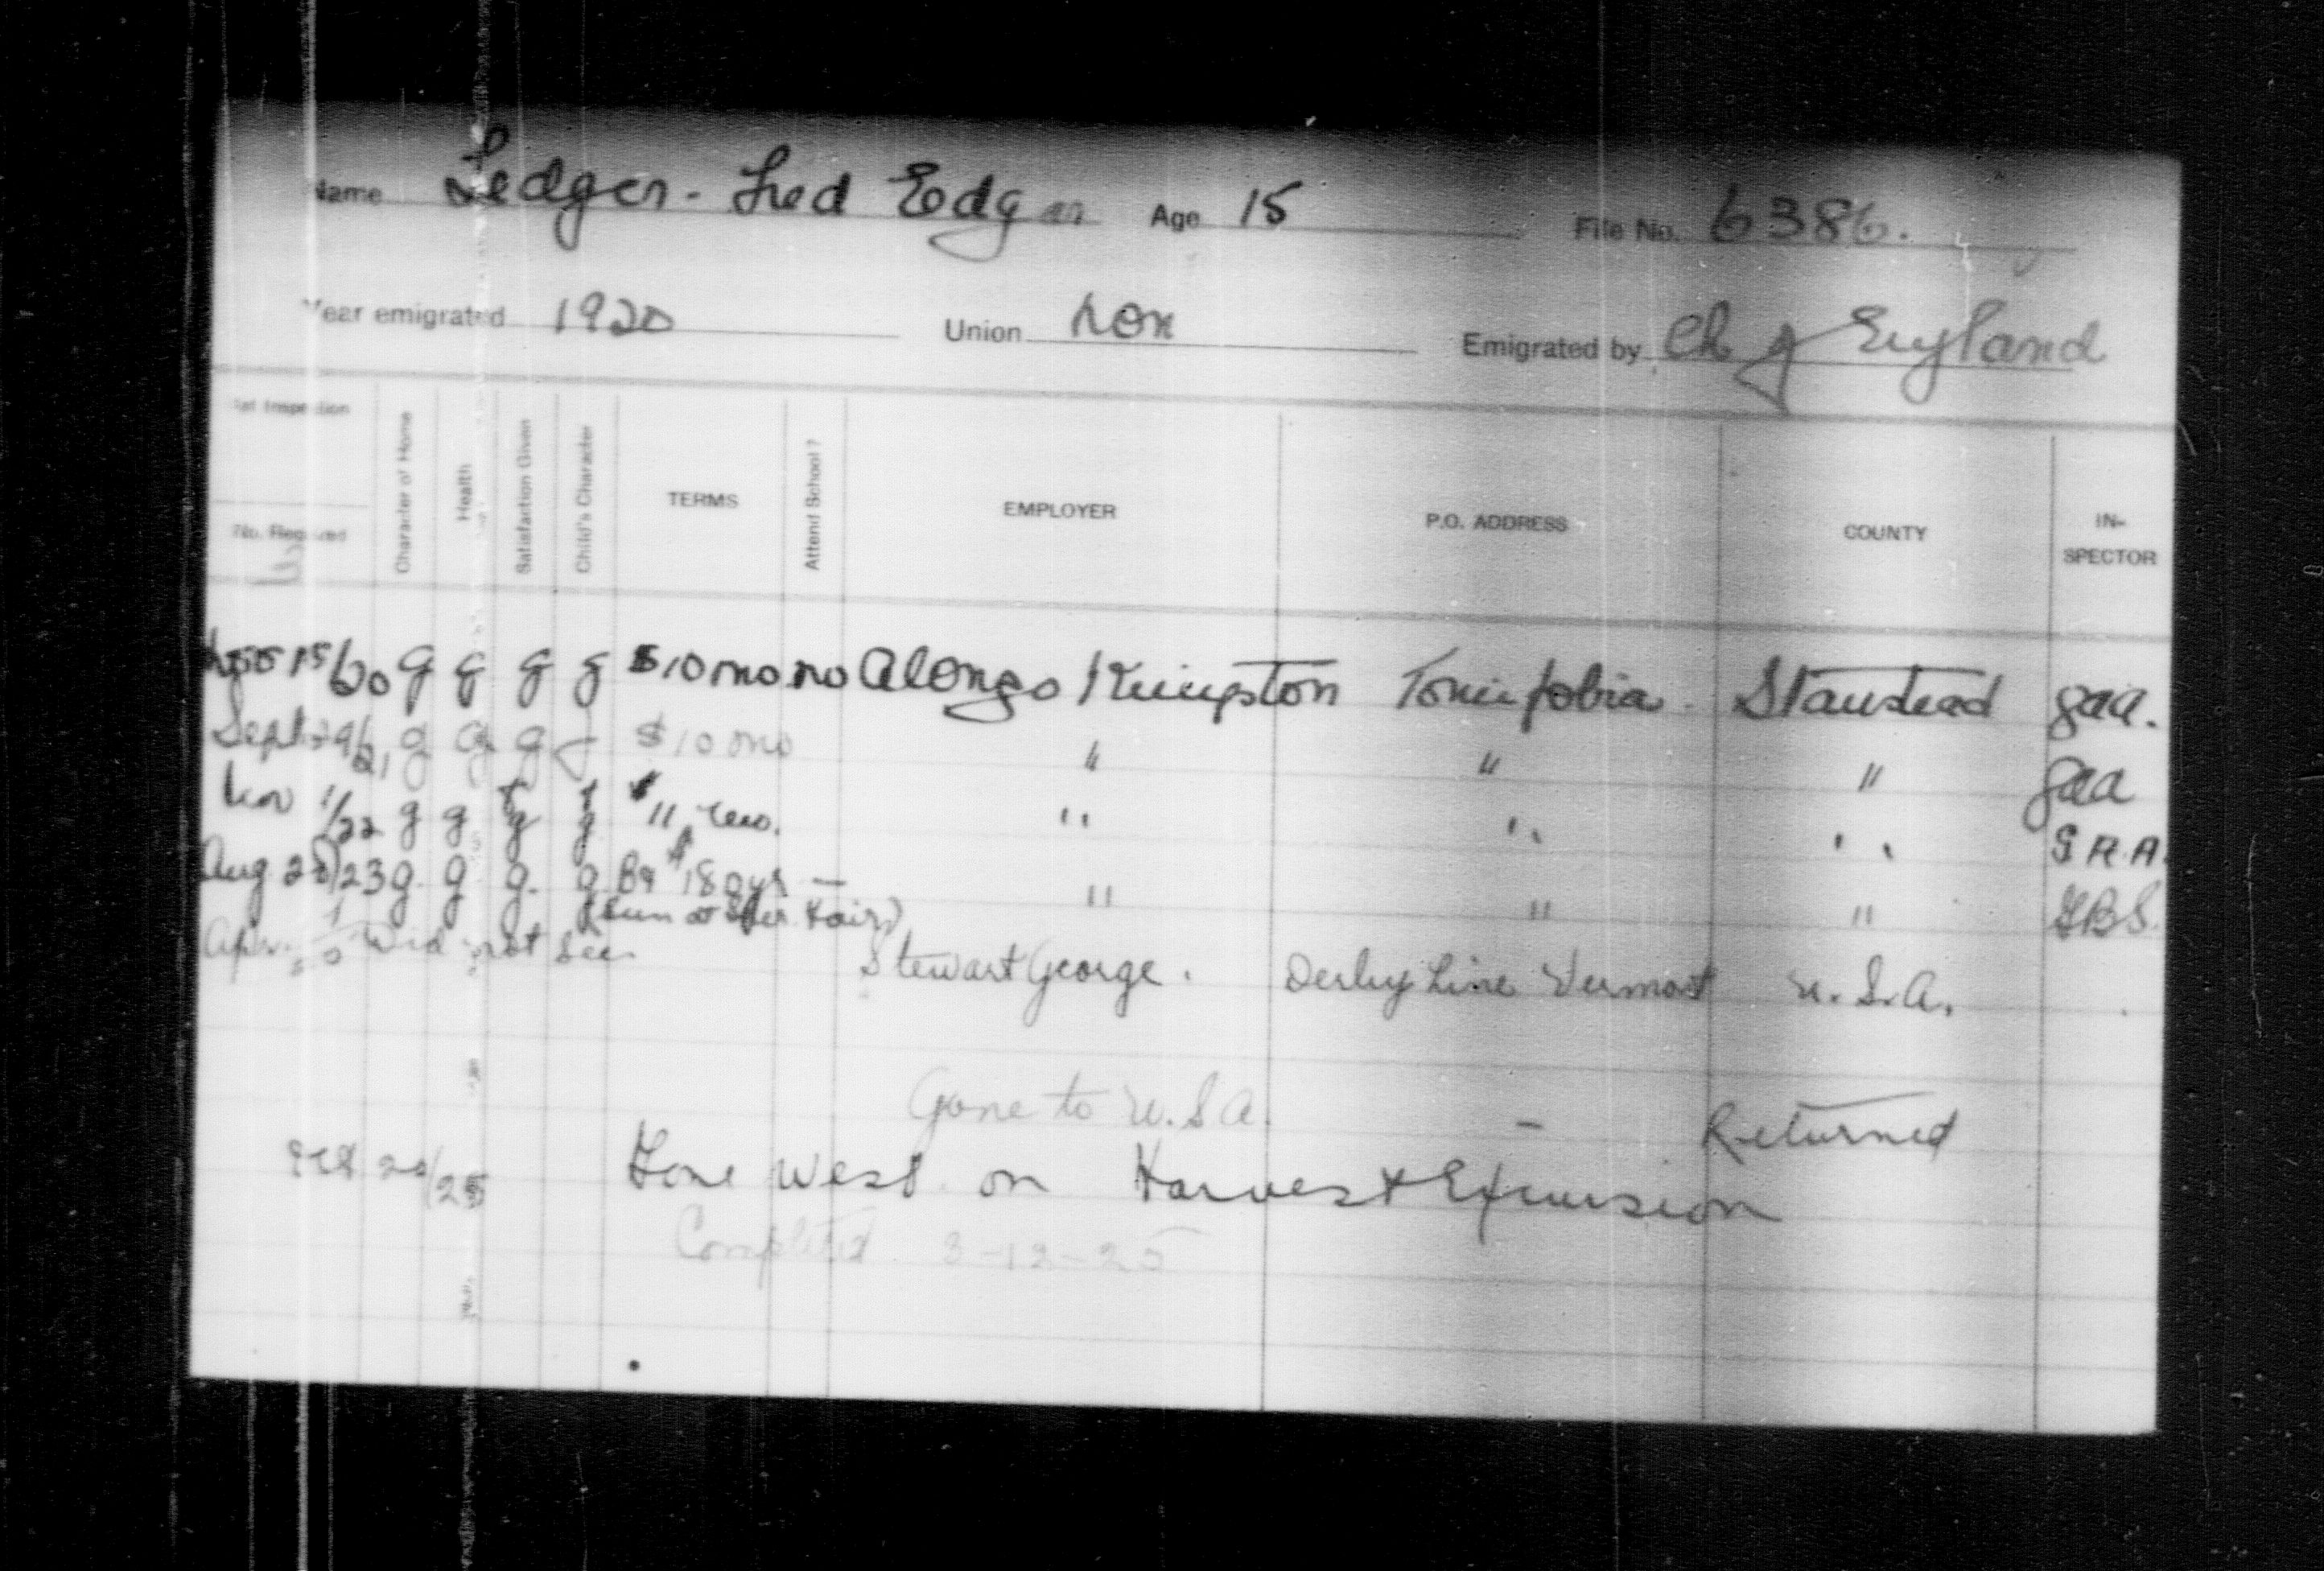 Name Ledger - Fred Edgar Age 15 File No. 6386.
Year emigrated 1920 Union non Emigrated by Ch of England
Inspection
No. Required
Character of Home
Health
Satisfaction Given
Child's Character
TERMS
Attend School?
EMPLOYER
P.O. ADDRESS
COUNTY
IN-
SPECTOR
15/20 g g g g $10 mo no Alonzo Kimpston Tomifobia. Stanstead gaa.
Sept 29/21 g g g - $10 mo " " " gaa
Nov 1/22 g g g g $11 mo. " " " G R A.
Aug 23 g g g. g. $18 — " " " GBS.
Apr. Did not See Stewart George. Derby Line Vermont U.S.A.
Gone to U.S.A. - Returned
25 Gone West on Harvest Excursion
Completed 3-12-25